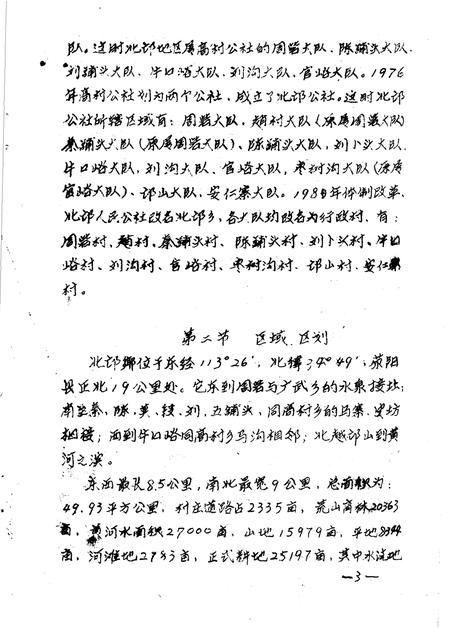 队。这时北邙地区属高村公社的周砦大队、陈铺头大队、
刘铺头大队、牛口峪大队、刘沟大队、官峪大队。1976
年高村公社划为两个公社、成立了北邙公社。这时北邙
公社所辖区域有：周砦大队、赵村大队（原属周砦大队）
秦铺头大队（原属周砦大队）、陈铺头大队、刘卜头大队、
牛口峪大队、刘沟大队、官峪大队、枣树沟大队（原属
官峪大队）、邙山大队、安仁寨大队。1983年体制改革、
北邙人民公社改名北邙乡，各大队均改名为行政村、有：
周砦村、赵村、秦铺头村、陈铺头村、刘卜头村、牛口
峪村、刘沟村、官峪村、枣树沟村、邙山村、安仁寨
村。
第二节 区域区划
北邙乡位于东经113°26′，北纬34°49′，荥阳
县正北19公里处。它东到周砦与广武乡的水泉接壤；
南至秦、陈、吴、刘、五铺头、同高村乡的马寨、
相接；西到牛口峪同高村乡马沟相邻；北越邙山到黄
河之滨。
东西最长8.5公里，南北最宽9公里，总面积为：
49.93平方公里，村庄道路占2335亩，荒山育林20363
亩，黄河水面积27000亩，山地15979亩，平地
亩，河滩地2783亩，正式耕地25197亩，其中水浇地
—3—